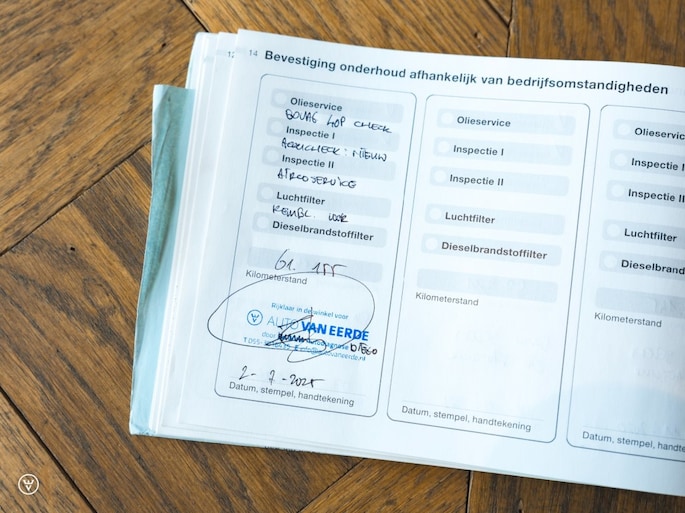 12
14 Bevestiging onderhoud afhankelijk van bedrijfsomstandigheden
Olieservice
BOVAG 40P CHECK
Inspectie I
ACCUCHECK: NIEUW
Inspectie II
AIRCOSERVICE
Luchtfilter
REMBL. VOOR
Dieselbrandstoffilter
61.155
Kilometerstand
Rijklaar in de winkel voor
AUTO VAN EERDE
Door
DIEGO
T 055-
2-7-2025
Datum, stempel, handtekening
Olieservice
Inspectie I
Inspectie II
Luchtfilter
Dieselbrandstoffilter
Kilometerstand
Datum, stempel, handtekening
Olieservice
Inspectie I
Inspectie II
Luchtfilter
Dieselbrandstoffilter
Kilometerstand
Datum, stempel, handtekening